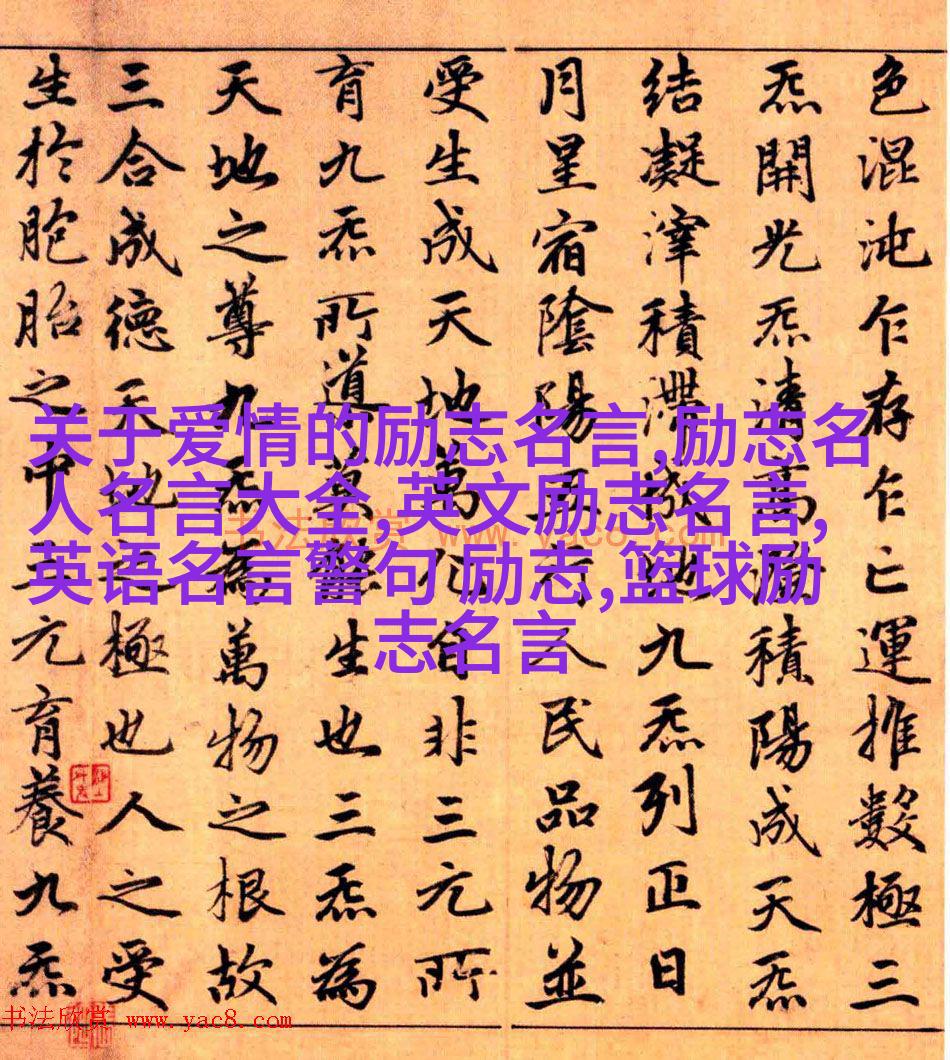 色混沌乍存乍亡運推數極三
炁開光炁清高澄積陽成天炁
結凝滓積滯發地九炁列正日
月星宿陰陽五行人民品物並
受生成天地萬化自非三元所
育九炁所導莫能生也三炁為
天地之尊九炁為萬物之根故
三合成德天地之極也人之受
生於胞胎之中三元育養九炁
关于爱情的励志名言,励志名
人名言大全,英文励志名言,
英语名言警句 励志,篮球励
志名言
书法欣赏 www.yac8.com
书法欣赏 www.yac8.com